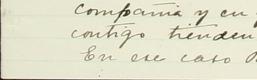 compañia y en
contigo tienden
En ese caso